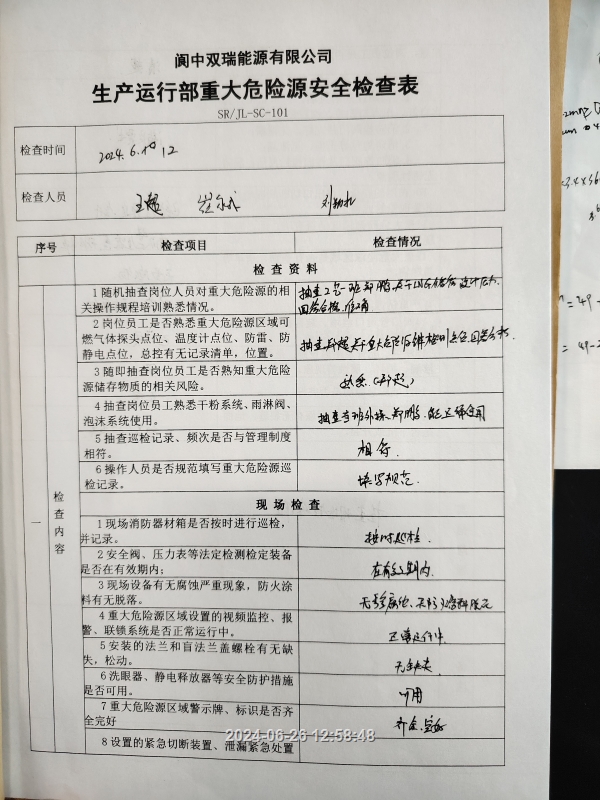 阆中双瑞能源有限公司
生产运行部重大危险源安全检查表
SR/JL-SC-101
检查时间
2024.6. 12
检查人员
王超
序号 检查项目 检查情况
检查资料
1 随机抽查岗位人员对重大危险源的相
关操作规程培训熟悉情况。
抽查 班郑鹏
回答合格
2 岗位员工是否熟悉重大危险源区域可
燃气体探头点位、温度计点位、防雷、防
静电点位，总控有无记录清单，位置。
抽查 重大危险源
3 随即抽查岗位员工是否熟知重大危险
源储存物质的相关风险。
熟悉
4 抽查岗位员工熟悉干粉系统、雨淋阀、
泡沫系统使用。
抽查 班 郑鹏 能正确使用
5 抽查巡检记录、频次是否与管理制度
相符。
相符.
6 操作人员是否规范填写重大危险源巡
检记录。
填写规范.
现场检查
一
检查内容
1 现场消防器材箱是否按时进行巡检，
并记录。
按时巡检.
2 安全阀、压力表等法定检测检定装备
是否在有效期内；
在有效期内.
3 现场设备有无腐蚀严重现象，防火涂
料有无脱落。
无严重腐蚀、 涂料脱落
4 重大危险源区域设置的视频监控、报
警、联锁系统是否正常运行中。
正常运行中.
5 安装的法兰和盲法兰盖螺栓有无缺
失，松动。
无缺失
6 洗眼器、静电释放器等安全防护措施
是否可用。
可用
7 重大危险源区域警示牌、标识是否齐
全完好
齐全、完好
8 设置的紧急切断装置、泄漏紧急处置
2024-06-26 12:58:48
= 49 -
= 49-2